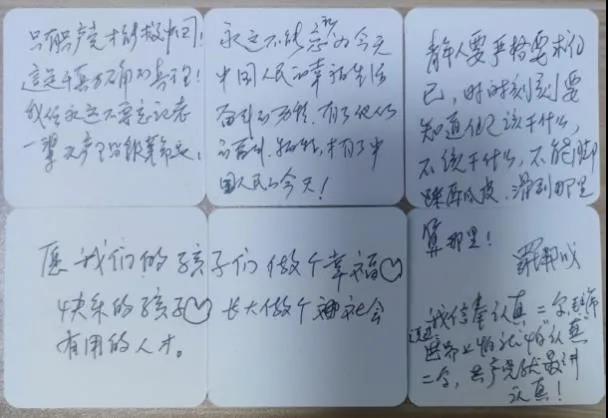 只有共产党才能救中国!
这是千真万确的真理!
我们永远不要忘记老
一辈无产阶级革命家!
永远不能忘记为今天
中国人民的幸福生活
奋斗的 有了他们
的奋斗、牺牲,才有了中
国人民的今天!
青年人要严格要求自
己,时时刻刻要
知道自己该干什么,
不该干什么,不能脚
踩西瓜皮,滑到那里
算那里!
愿我们的孩子们做个幸福♡
快乐的孩子♡ 长大做个 社会
有用的人才。
我信奉认真二字,
世界上怕就怕认真
二字,共产党就最讲
认真!